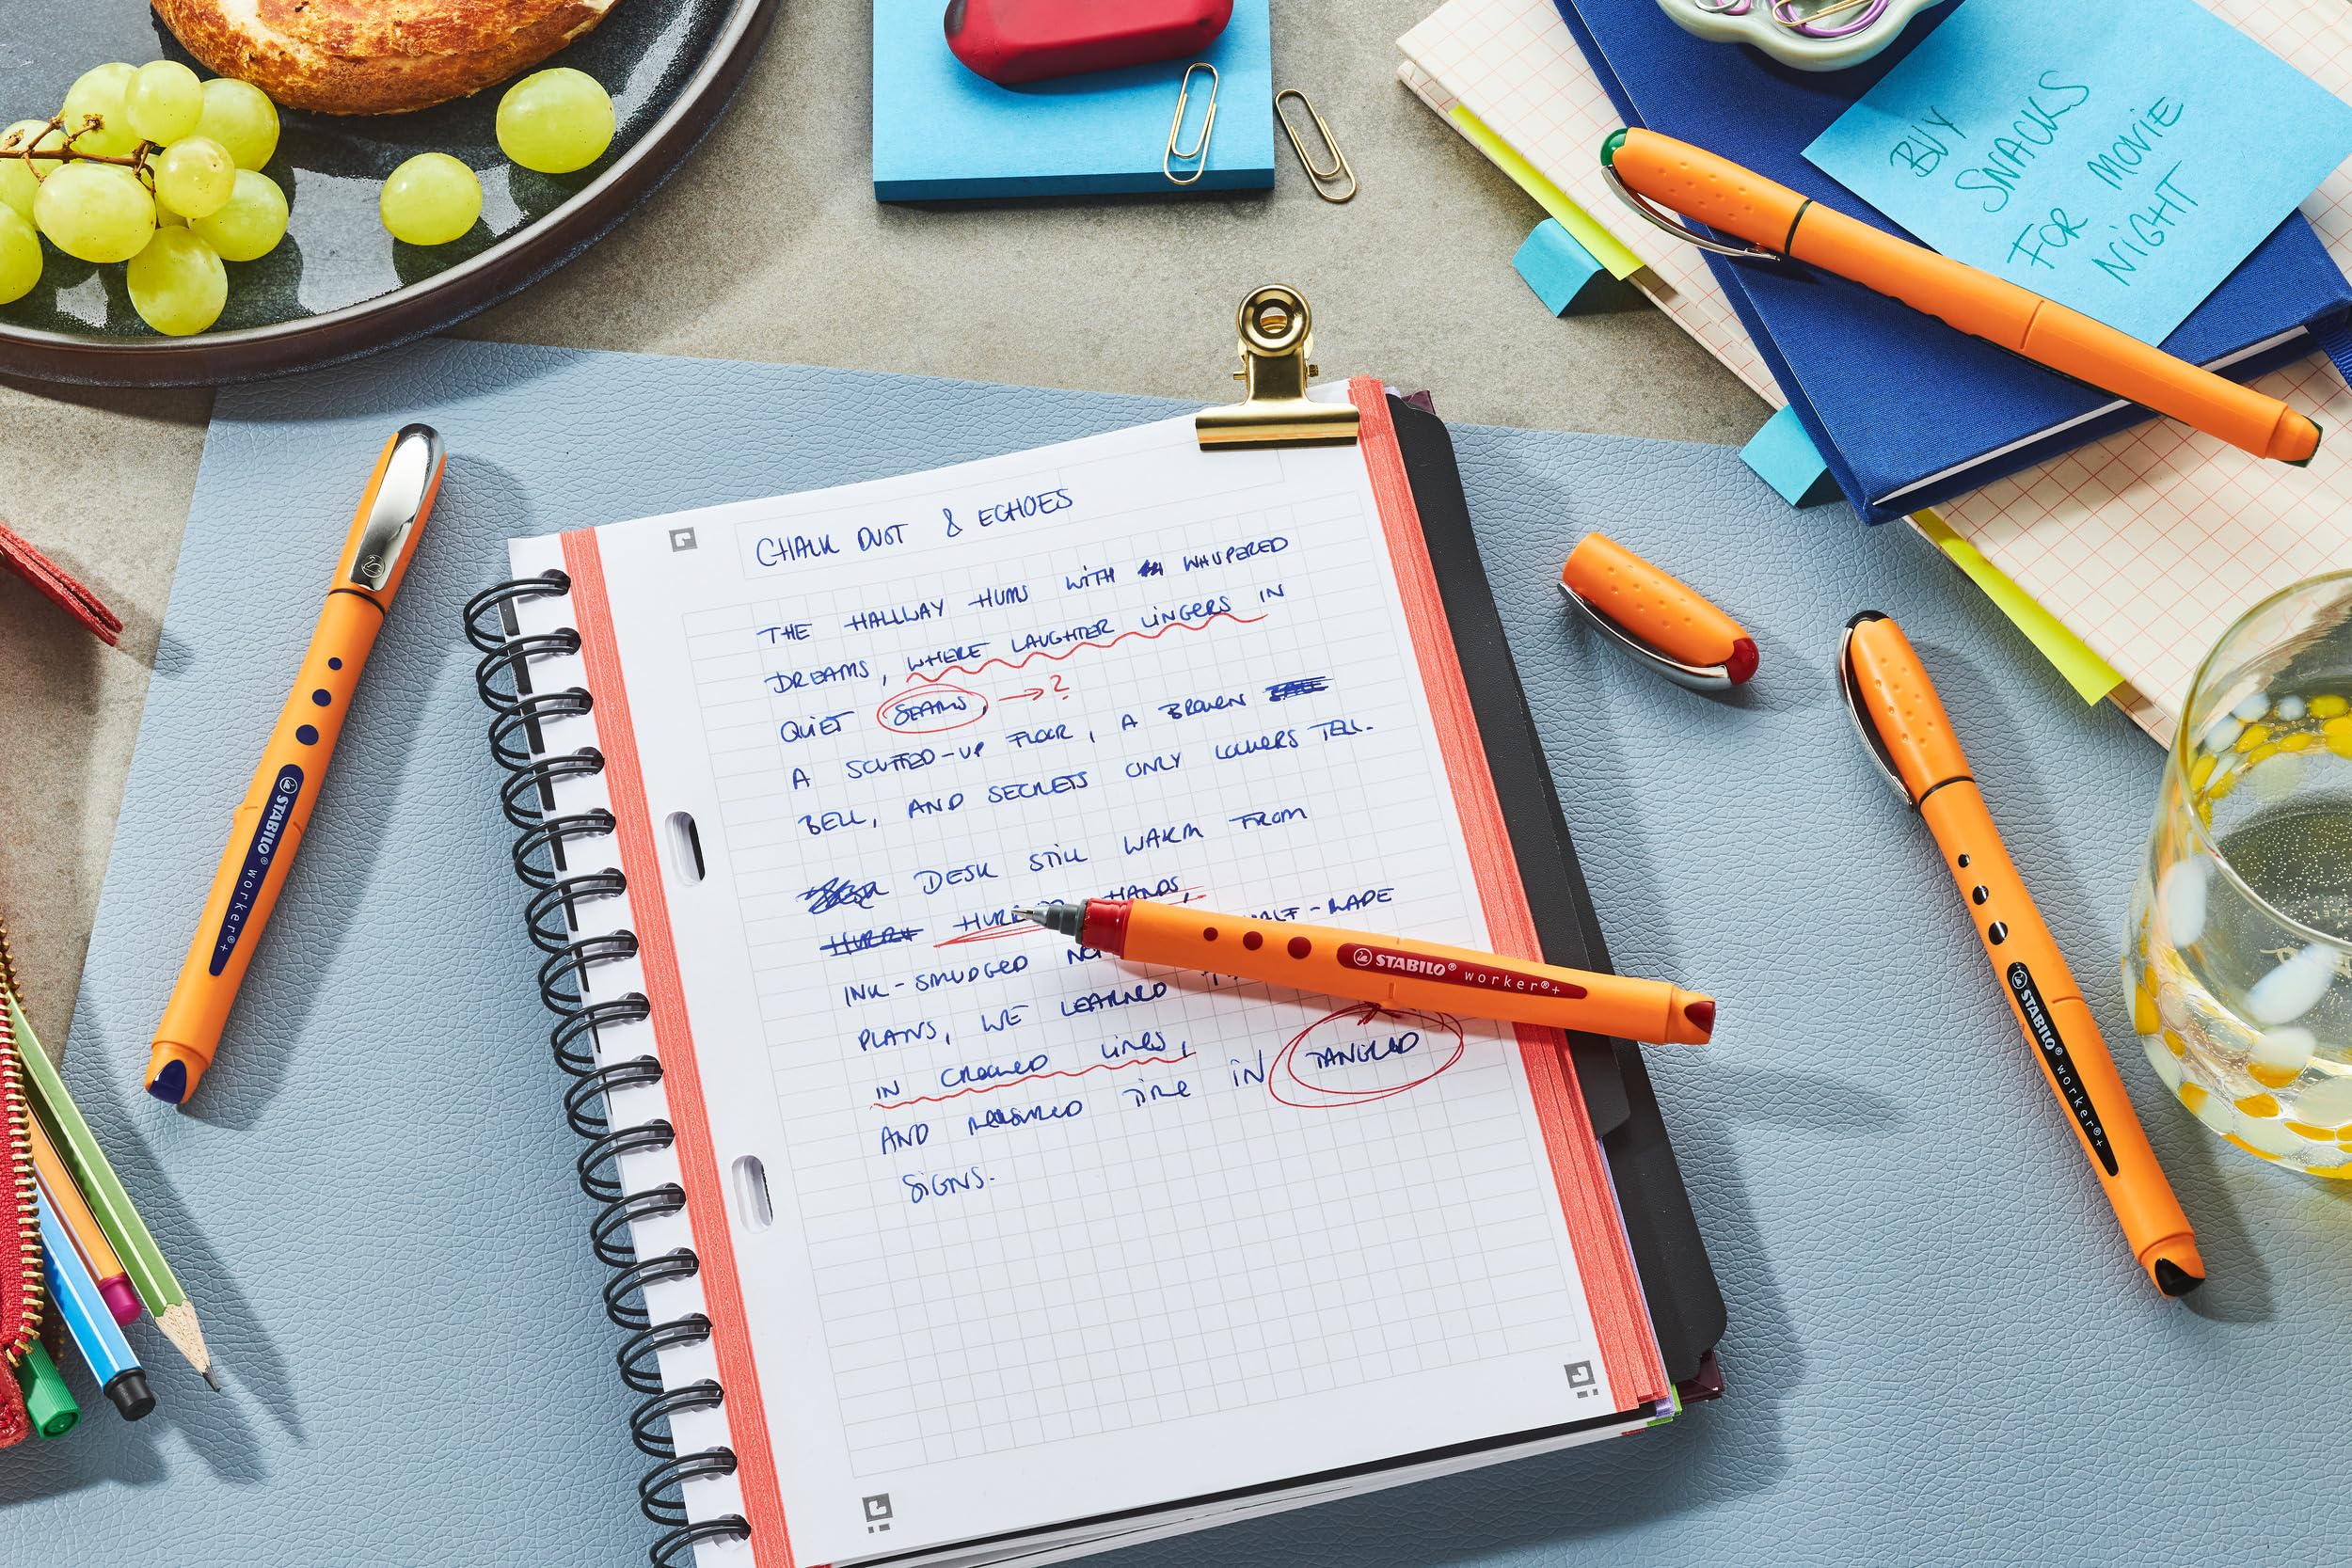 BUY
SNACKS
FOR MOVIE
NIGHT
CHALK DUST & ECHOES
THE HALLWAY HUMS WITH WHISPERED
DREAMS, WHERE LAUGHTER LINGERS IN
QUIET SEAMS, → ?
A SCUFFED-UP FLOOR, A BROKEN
BELL, AND SECRETS ONLY LOCKERS TELL.
DESK STILL WARM FROM
HURRIED HANDS,
INK-SMUDGED HALF-MADE
PLANS, WE LEARNED
IN CROOKED LINES,
AND MEASURED TIME IN TANGLED
SIGNS.
STABILO® worker®+
STABILO® worker®+
STABILO® worker®+